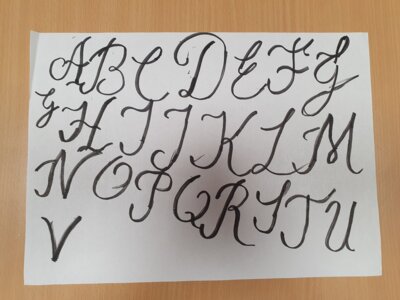 A B C D E F G
G H I J K L M
N O P Q R S T U
V